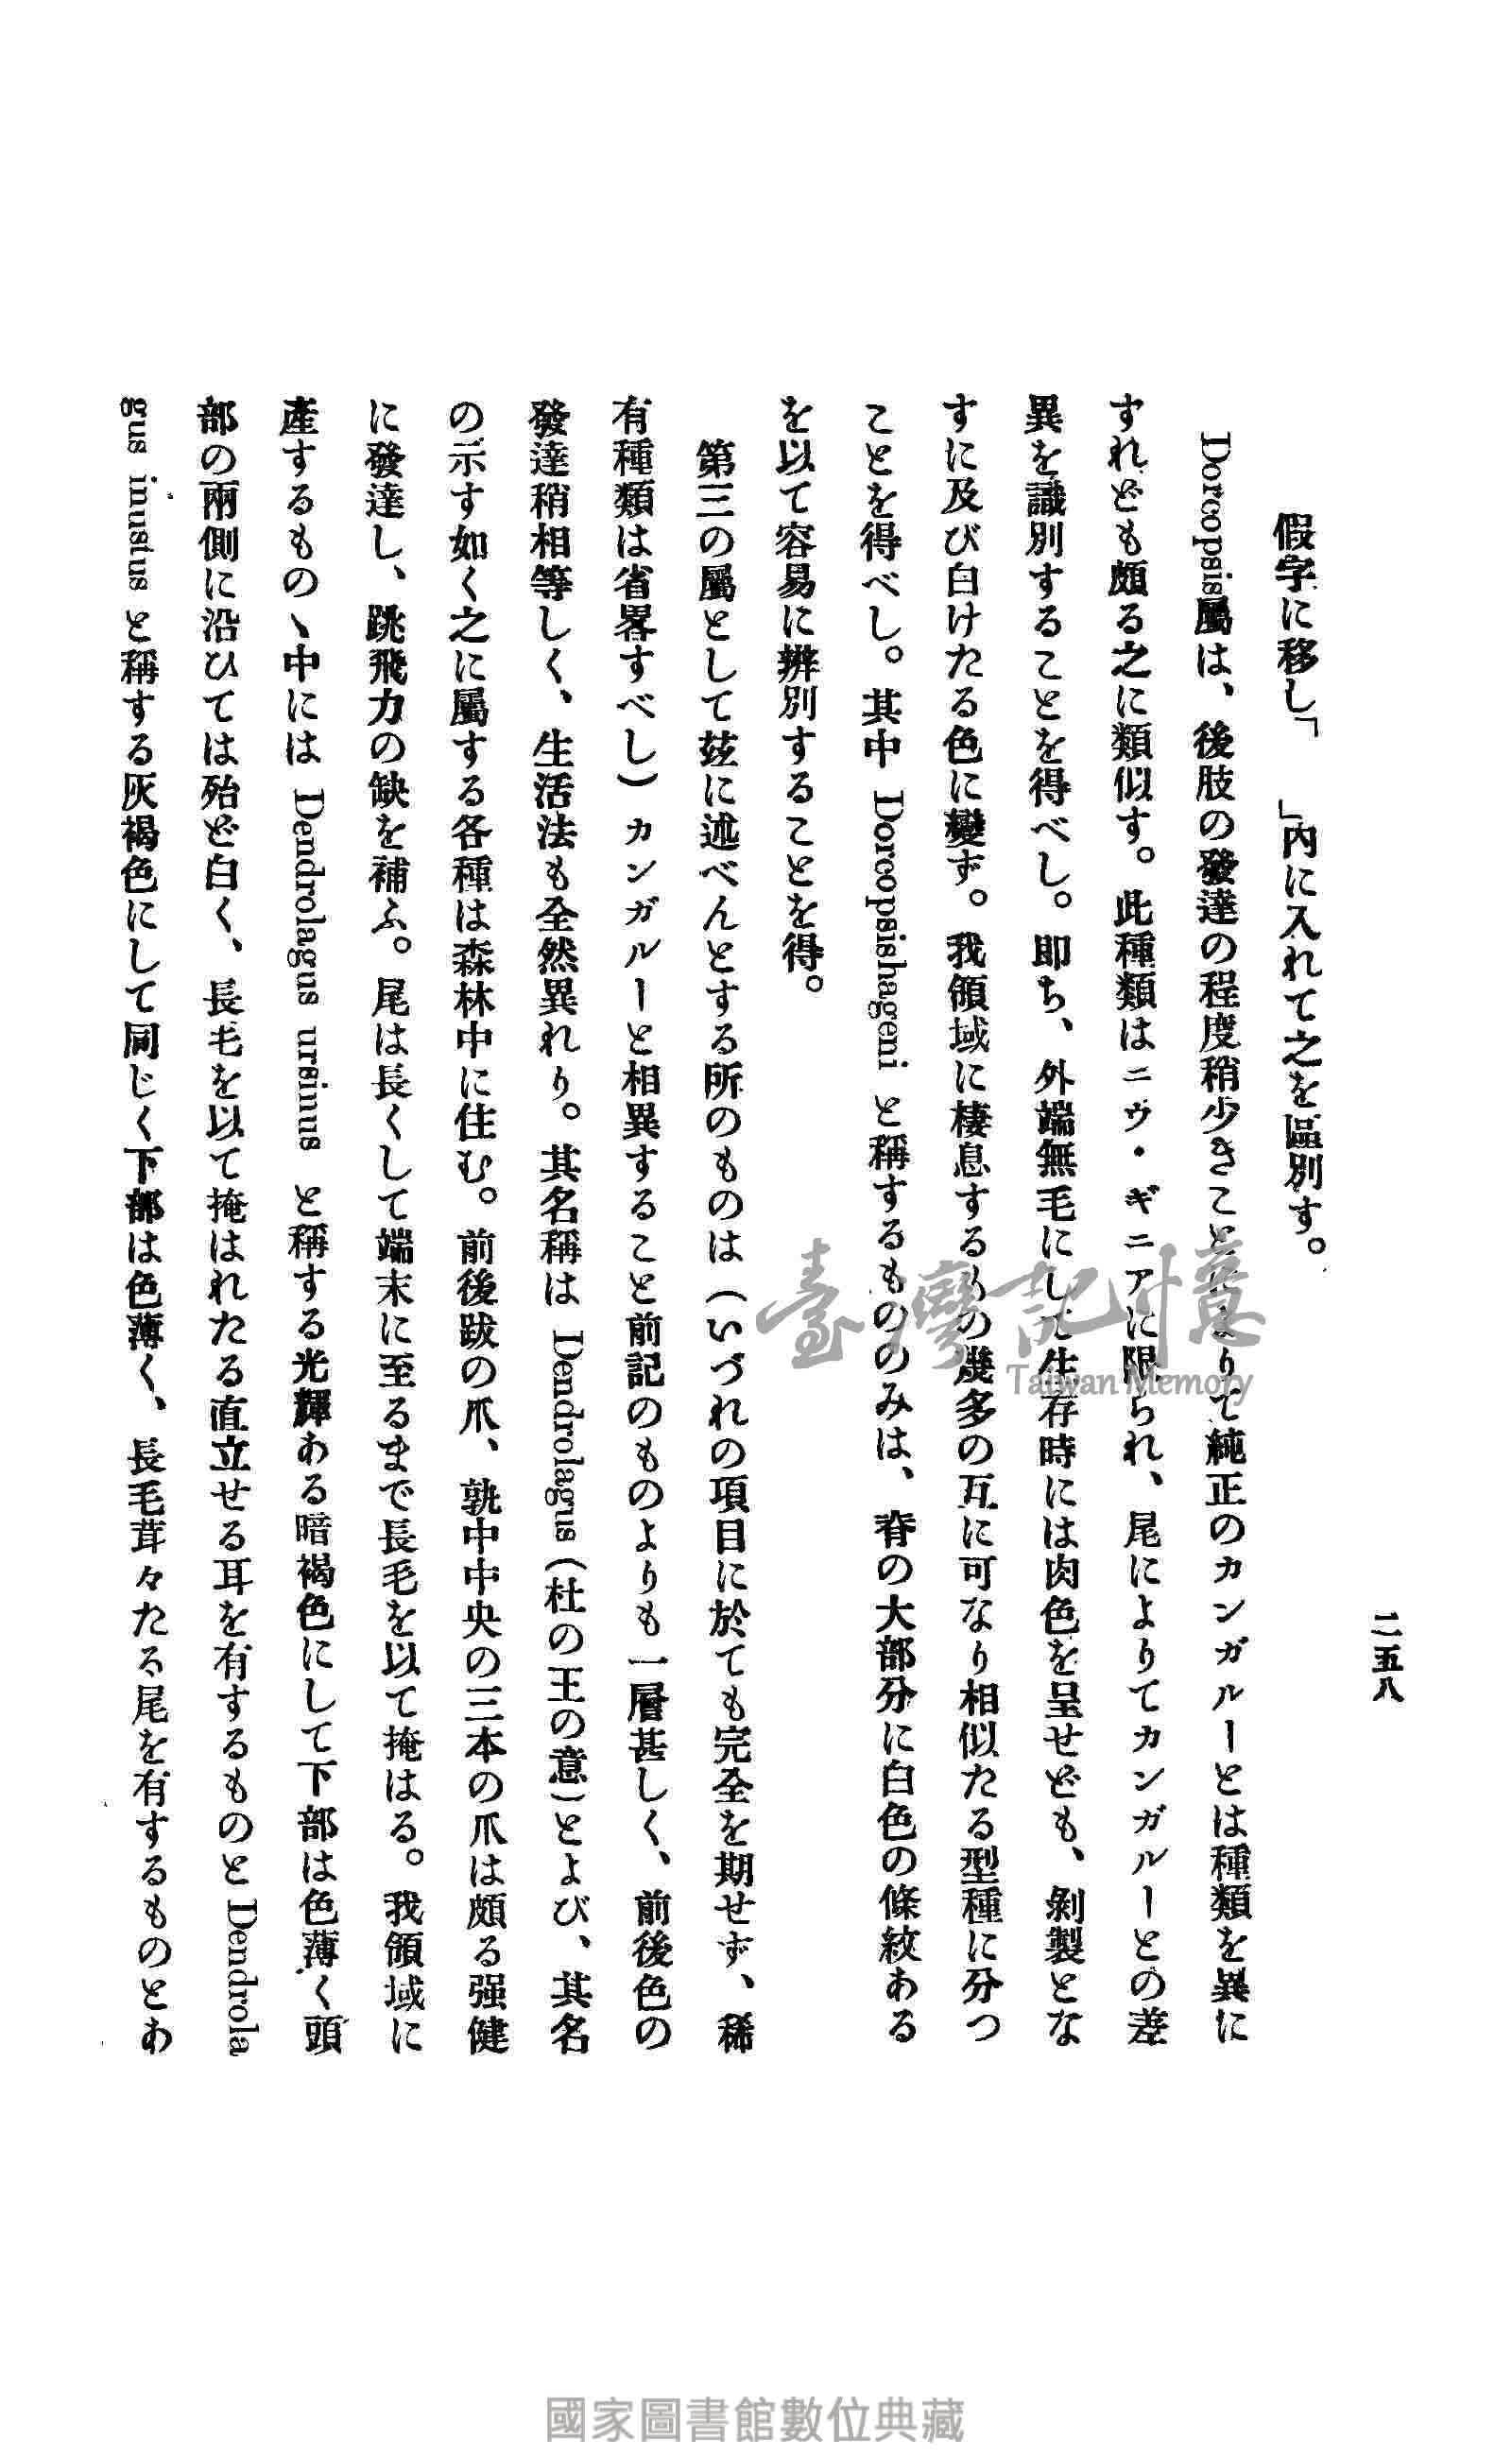 二五八
假字に移し「　　」內に入れて之を區別す。
Dorcopsis屬は、後肢の發達の程度稍少きことによりて純正のカンガルーとは種類を異に
すれども頗る之に類似す。此種類はニウ・ギニアに限られ、尾によりてカンガルーとの差
異を識別することを得べし。卽ち、外端無毛にして生存時には肉色を呈せども、剝製とな
すに及び白けたる色に變ず。我領域に棲息するもの幾多の互に可なり相似たる型種に分つ
ことを得べし。其中 Dorcopsishageni と稱するもののみは、脊の大部分に白色の條紋ある
を以て容易に辨別することを得。
第三の屬として玆に述べんとする所のものは（いづれの項目に於ても完全を期せず、稀
有種類は省畧すべし）カンガルーと相異すること前記のものよりも一層甚しく、前後色の
發達稍相等しく、生活法も全然異れり。其名稱は Dendrolagus（杜の王の意）とよび、其名
の示す如く之に屬する各種は森林中に住む。前後跋の爪、孰中中央の三本の爪は頗る强健
に發達し、跳飛力の缺を補ふ。尾は長くして端末に至るまで長毛を以て掩はる。我領域に
產するものゝ中には Dendrolagus ursinus と稱する光輝ある暗褐色にして下部は色薄く頭
部の兩側に沿ひては殆ど白く、長毛を以て掩はれたる直立せる耳を有するものと Dendrola
gus inustus と稱する灰褐色にして同じく下部は色薄く、長毛茸々たる尾を有するものとあ
臺灣記憶
Taiwan Memory
國家圖書館數位典藏